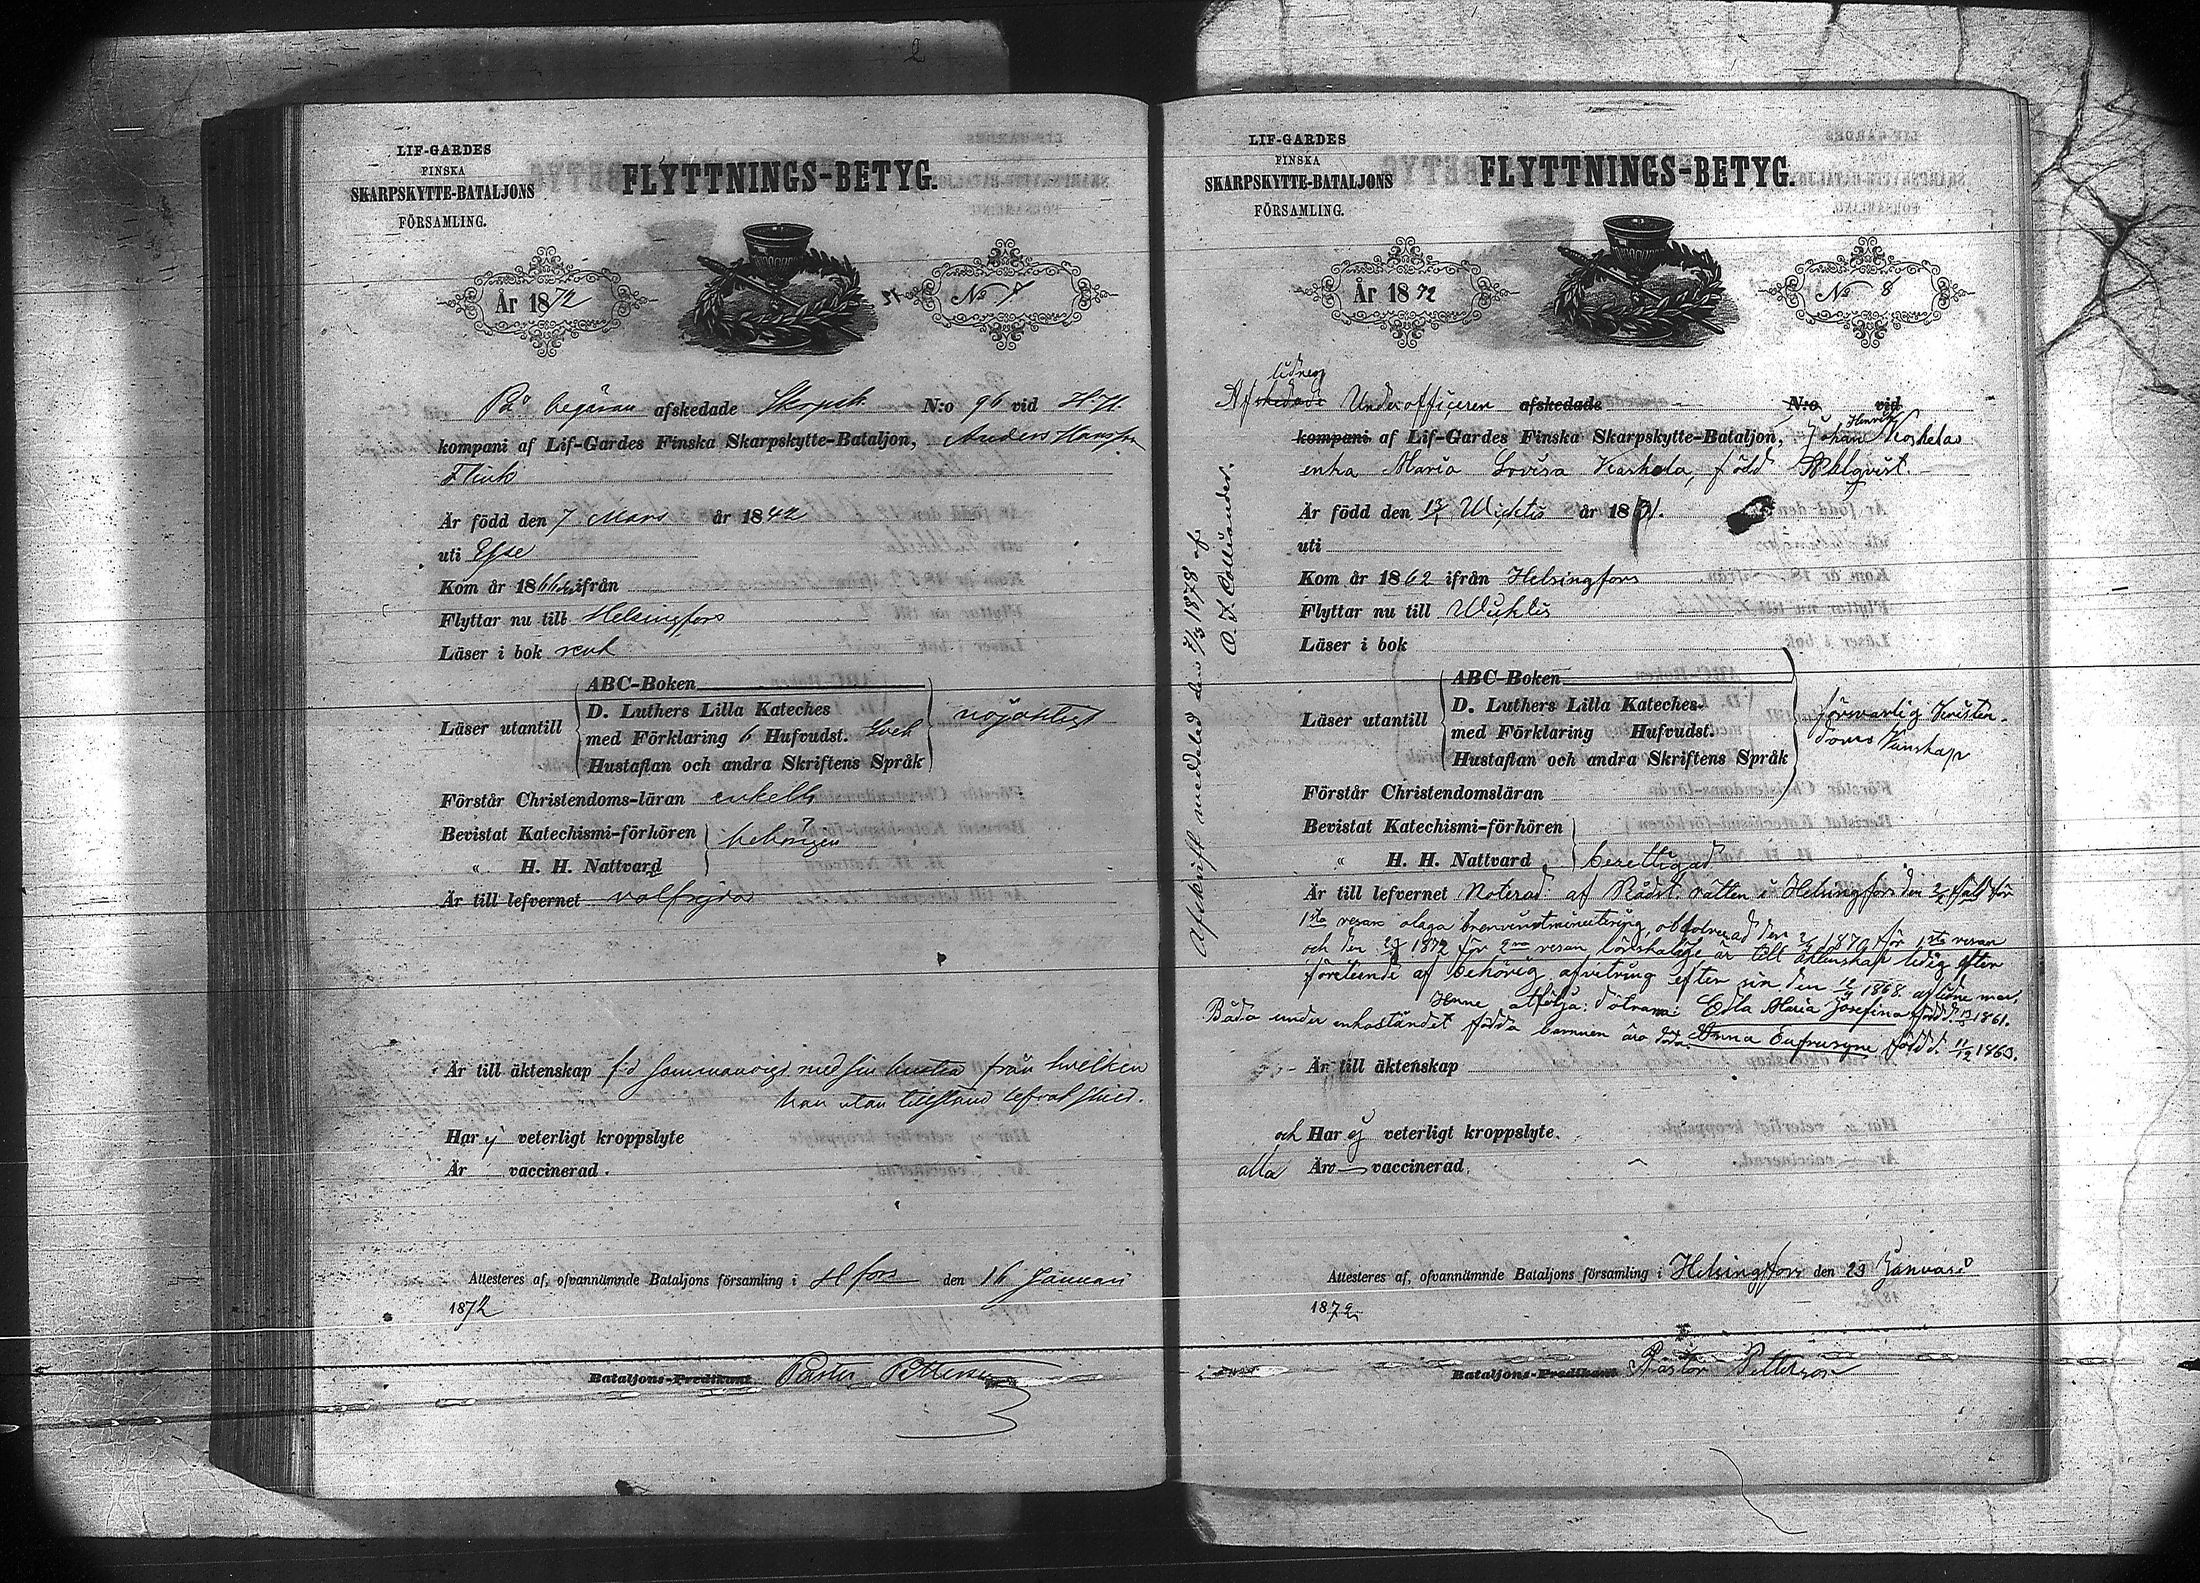 2
LIF-GARDES
FINSKA
SKARPSKYTTE-BATALJONS
FÖRSAMLING.
FLYTTNINGS-BETYG.
År 1872
No 7
På begäran afskedade Skarpsk. N:o 96 vid
kompani af Lif-Gardes Finska Skarpskytte-Bataljon, Anders Hansson
Flink
Är född den 7 Mars år 1842
uti Esse
Kom år 1866 ifrån
Flyttar nu till Helsingfors
Läser i bok rent
ABC-Boken
D. Luthers Lilla Kateches
Läser utantill med Förklaring 6 Hufvudst.
Hustaflan och andra Skriftens Språk
nöjaktigt
Förstår Christendoms-läran enkelt
Bevistat Katechismi-förhören
" H. H. Nattvard
behörigen
Är till lefvernet välfrejdad
Är till äktenskap f.d. sammanvigd med sin hustru från hvilken
han utan tillstånd lefvat skild.
Har ej veterligt kroppslyte
Är vaccinerad.
Attesteres af, ofvannämnde Bataljons församling i H fors den 16 Januari
1872
Bataljons-Predikant Pastor Petterson
LIF-GARDES
FINSKA
SKARPSKYTTE-BATALJONS
FÖRSAMLING.
FLYTTNINGS-BETYG.
År 1872
No 8
lidne
Afskedade Underofficeren afskedade N:o vid
Henrik
kompani af Lif-Gardes Finska Skarpskytte-Bataljon, Johan Koskelas
enka Maria Lovisa Koskela, född Ahlqvist
Är född den Wichtis år 18
uti
Kom år 1862 ifrån Helsingfors
Flyttar nu till Wichtis
Läser i bok
ABC-Boken
D. Luthers Lilla Kateches
Läser utantill med Förklaring Hufvudst.
Hustaflan och andra Skriftens Språk
försvarlig Kristen-
doms kunskap
Förstår Christendomsläran
Bevistat Katechismi-förhören
" H. H. Nattvard
berättigad
Är till lefvernet Noterad af Rådst. rätten i Helsingfors den fälld för
1sta resan olaga bränvinsminutering, absolverad den 1870 för 1sta resan
och den 1872 för 2dra resan lönskaläge är till äktenskap ledig efter
företeende af behörig afvitring efter sin den 1868 aflidne man.
Henne åtfölja: döttrarna: Edla Maria Josefina född 1861.
Båda under enkeståndet födda barnen äro döda. Anna Eufrosyne född 11/12 1863.
Är till äktenskap
och Har ej veterligt kroppslyte.
alla Äro vaccinerad.
Attesteres af, ofvannämnde Bataljons församling i Helsingfors den 23 Januari
1872
Bataljons-Predikant Pastor Petterson
Afskrift meddelad den 1878 af